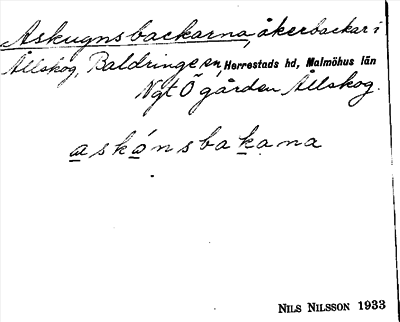 Askugnsbackarna, åkerbackar i
Ållskog, Baldringe sn, Herrestads hd, Malmöhus län
Ngt Ö gården Ållskog.
askónsbakana
NILS NILSSON 1933